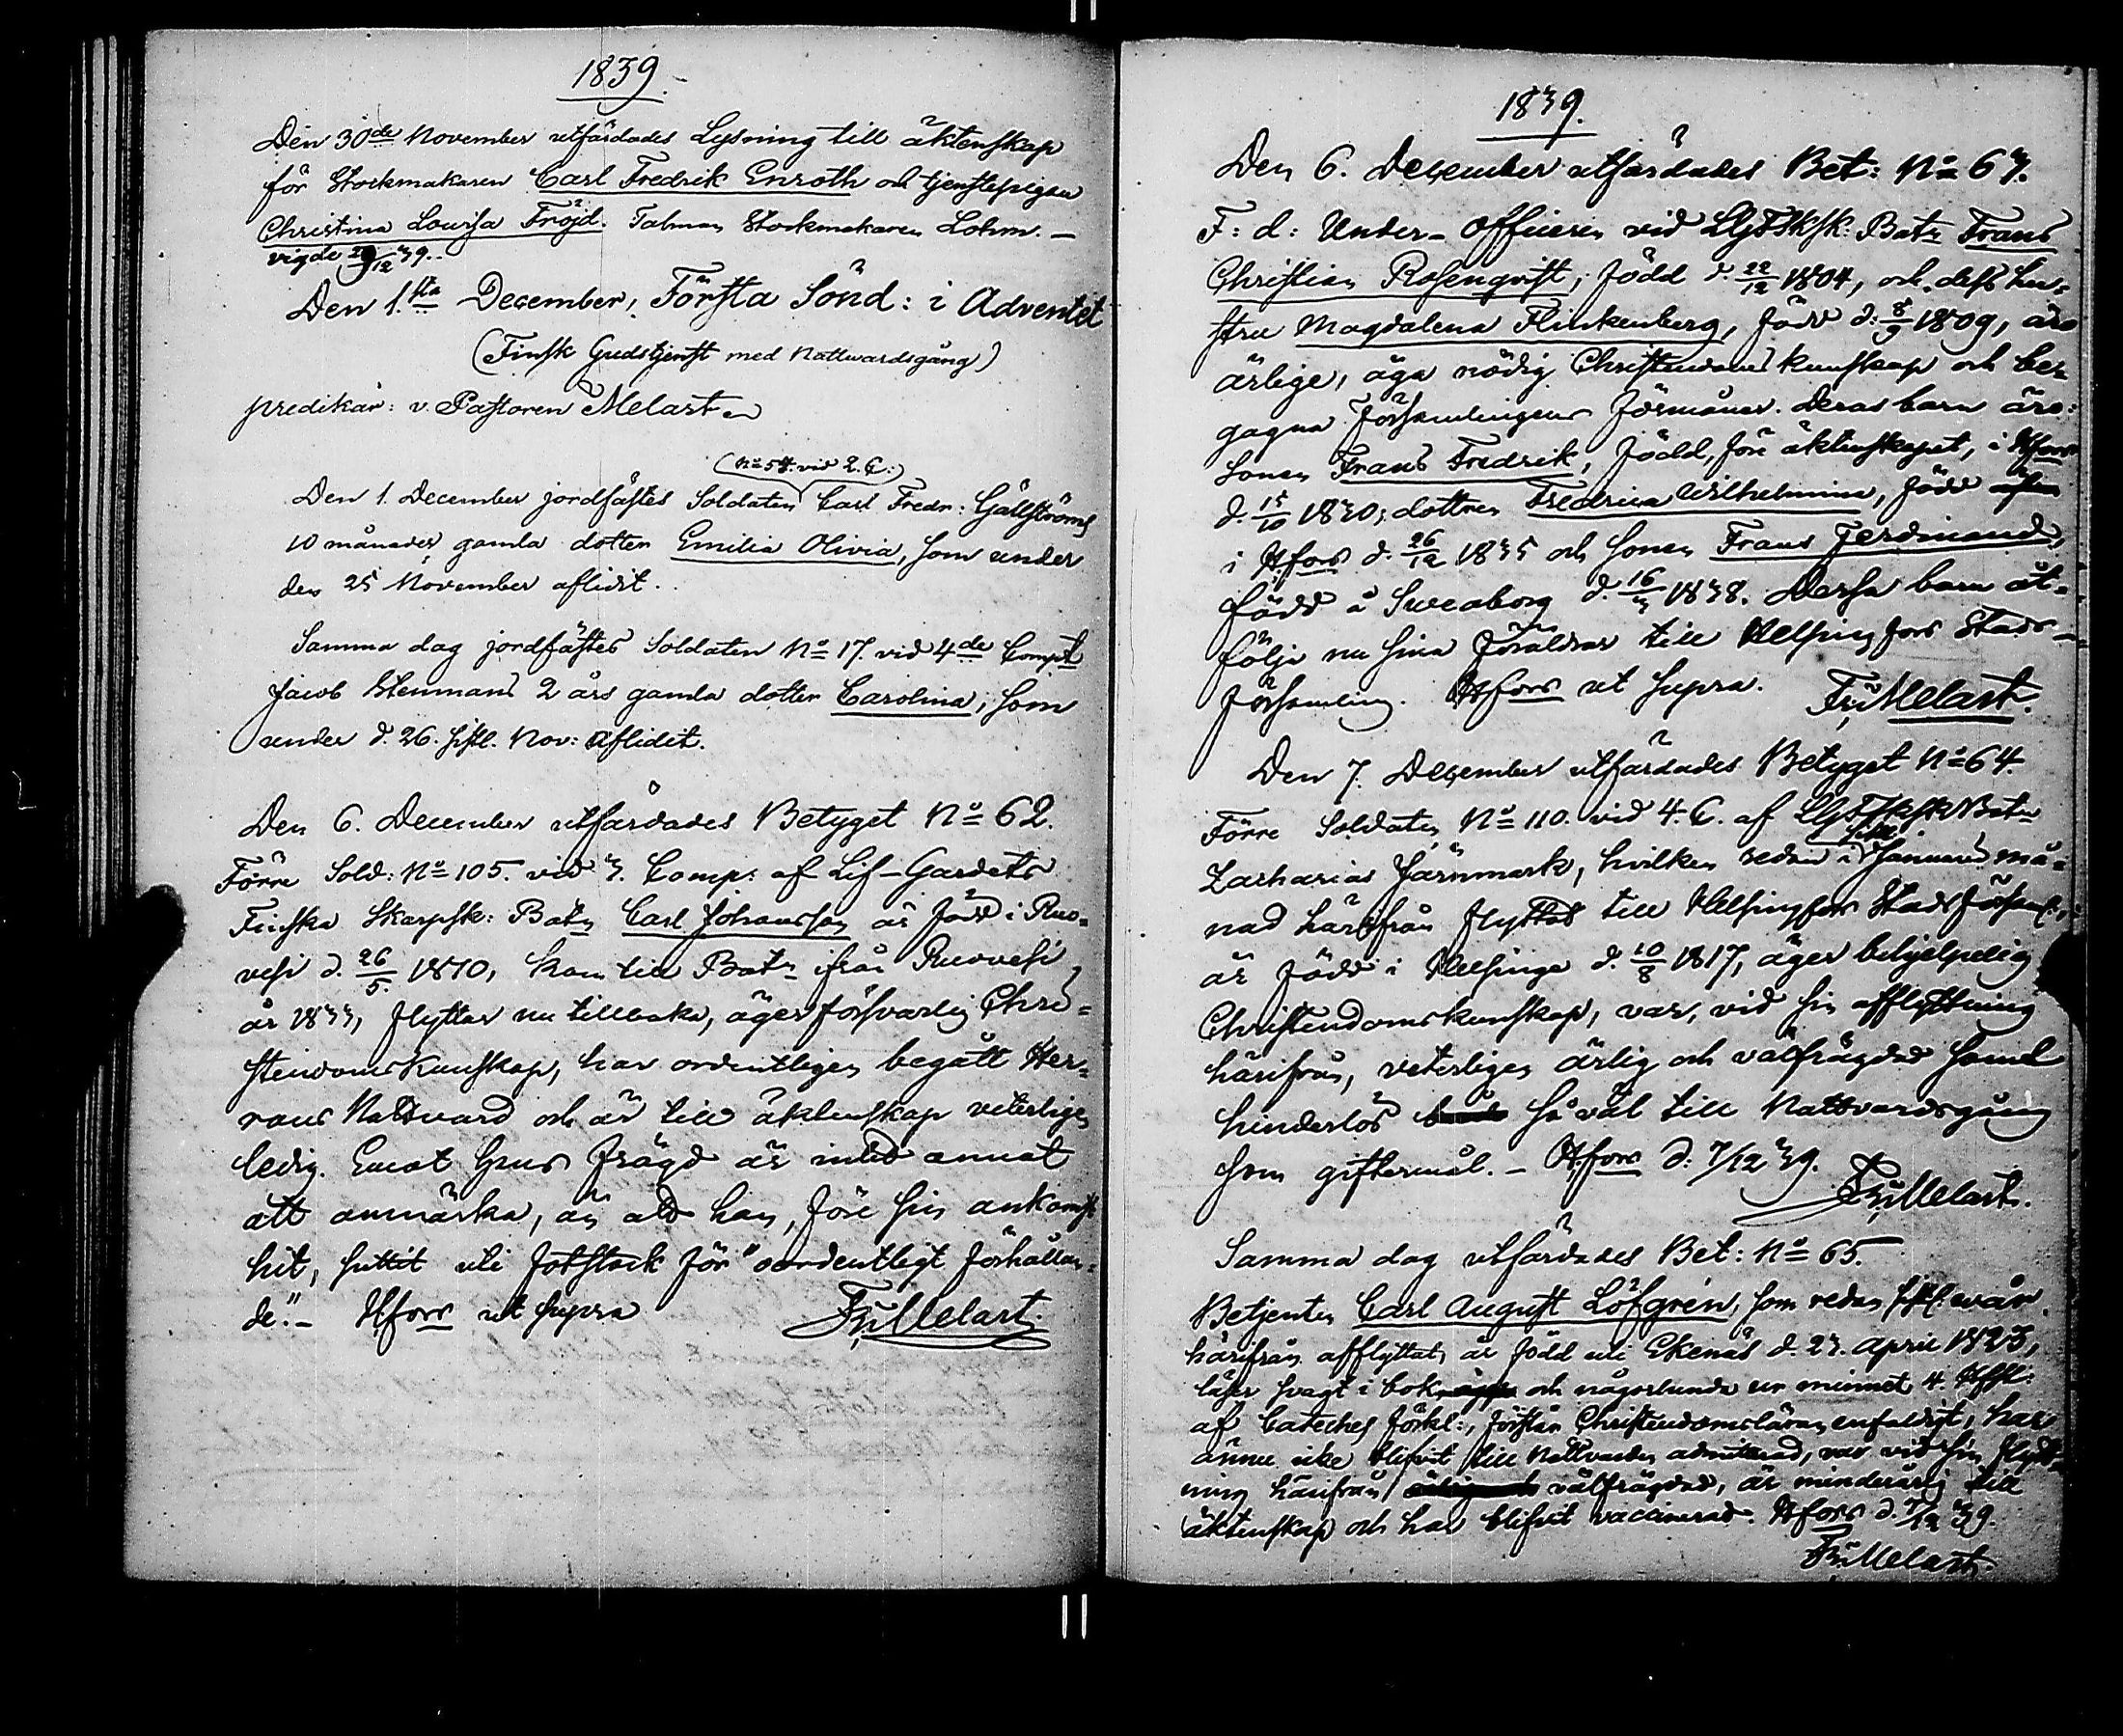 1839.
Den 30de November utfärdades Lysning till äktenskap
för Stockmakaren Carl Fredrik Enroth och tjenstepigan
Christina Lovisa Fröjd. Talman Stockmakaren Lohm. —
vigde 29/12 39.
Den 1.sta December, Första Sönd: i Adventet
(Finsk Gudstjenst med Nattvardsgång)
predikar: v. Pastoren Melart
(No 54. vid 2. C:)
Den 1. December jordfästes Soldaten Carl Fredr: Gällströms
10 månader gamla dotter Emilia Olivia, som under
den 25 November aflidit.
Samma dag jordfästes Soldaten No 17. vid 4de Compt
Jacob Stenmans 2 års gamla dotter Carolina, som
under d. 26. sistl. Nov: aflidit.
Den 6. December utfärdades Betyget No 62.
Förre Sold: No 105. vid 3. Comp: af Lif-Gardets
Finska Skarpsk: Batn Carl Johansson är född i Ruo-
vesi d. 26/5. 1810, kom till Batn ifrån Ruovesi
år 1833, flyttar nu tillbaka, äger försvarlig Chri-
stendomskunskap, har ordentligen begått Her-
rans Nattvard och är till äktenskap veterligen
ledig. Emot hans frägd är intet annat
att anmärka, än att han, före sin ankomst
hit, suttit uti fotstock för "oordentligt förhållan-
de". – Hfors ut supra
Fr: Melart.
1839.
Den 6. December utfärdades Bet: No 63.
F: d: Under-Officieren vid LGFSksk: Batn Frans
Christian Rosenqvist, född d. 22/12 1804, och dess hu-
stru Magdalena Flinkenberg, född d: 8/9 1809, äro
ärlige, äga nödig Christendoms kunskap och be-
gagna Församlingens förmåner. Deras barn äro:
Sonen Frans Fredrik, född, före äktenskapet, i Hfors
d. 15/10 1830, dottren Fredrica Wilhelmina, född
i Hfors d. 26/12 1835 och sonen Frans Ferdinand,
född å Sveaborg d. 16/3 1838. Dessa barn åt-
följa nu sina föräldrar till Helsingfors Stads-
församling. Hfors ut supra.
Fr: Melart.
Den 7. December utfärdades Betyget No 64.
Förre Soldaten No 110. vid 4. C. af LGFSkskBatn
sistl.
Zacharias Järnmark, hvilken redan i Januari må-
nad härifrån flyttat till Helsingfors Stads församl:,
är född i Helsinge d. 10/8 1817, äger behjelpelig
Christendomskunskap, var, vid sin afflyttning
härifrån, veterligen ärlig och välfrägdad samt
hinderlös så väl till Nattvardsgång
som giftermål. – Hfors d: 7/12 39.
Fr: Melart.
Samma dag utfärdades Bet: No 65.
Betjenten Carl August Löfgrén, som redan sistl. wår
härifrån afflyttat, är född uti Ekenäs d. 23. April 1823,
läser svagt i bok och någorlunda ur minnet 4. Hfst:
af Cateches förkl:, förstår Christendomsläran enfaldigt, har
ännu icke blifvit till Nattvarden admitterad, var vid sin flytt-
ning härifrån välfrägdad, är minderårig till
äktenskap och har blifvit vaccinerad. Hfors d. 7/12 39.
Fr: Melart.